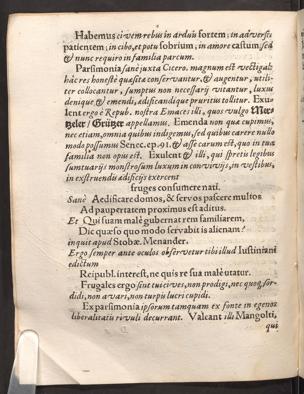 Habemus ci-vem rebus in arduis fortem; in adversis
patientem; in cibo, et potu sobrium, in amore castum, sed
& nunc requiro in familia parcum.
Parsimonia sanè juxta Cicero. magnum est vectigal:
hâc res honestè quæsita conservantur, & augentur, utili-
ter collocantur, sumptus non necessarij vitantur, luxus
denique & emendi, ædificandique pruritus tollitur. Exu-
lent ergo è Repub. nostra Emaces illi, quos vulgo
Grützer appellamus. Emenda non qua cupimus,
nec etiam, omnia quibus indigemus, sed quibus carere nullo
modo possumus Senec. ep. 91. & asse carum est, quo in tua
familia non opus est. Exulent & illi, qui spretis legibus
sumtuarijs monstrosum luxum in convivijs, in vestibus,
in exstruendis ædificijs exercent
fruges consumere nati.
Sanè Aedificare domos, & servos pascere multos
Ad paupertatem proximus est aditus.
Et Qui suam malè gubernat rem familiarem,
Dic quæso quo modo servabit is alienam?
inquit apud Stobæ. Menander.
Ergo semper ante oculos observetur tibi illud Justiniani
edictum
Reipubl. interest, ne quis re sua malè utatur.
Frugales ergo sint tui cives, non prodigi, nec quoq, sor-
didi, non avari, non turpis lucri cupidi.
Ex parsimonia ipsorum tamquam ex fonte in egenos
liberalitatis rivuli decurrant. Valeant illi Mangolti,
qui